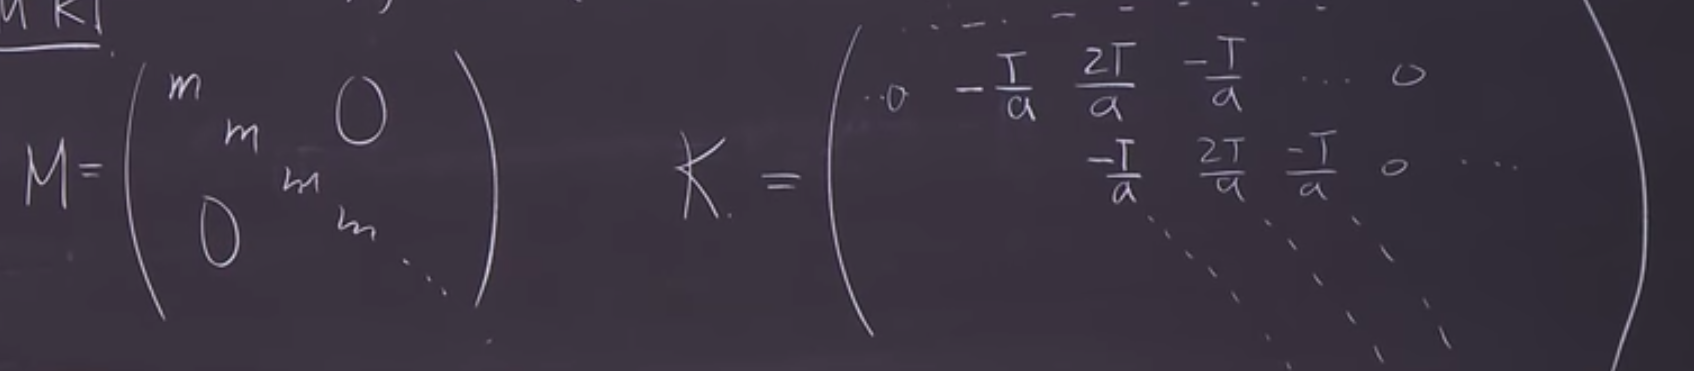 M = ( m m m m ... 0 0 )
K = ( ...0 -T/a 2T/a -T/a ... 0
-T/a 2T/a -T/a 0 ... )